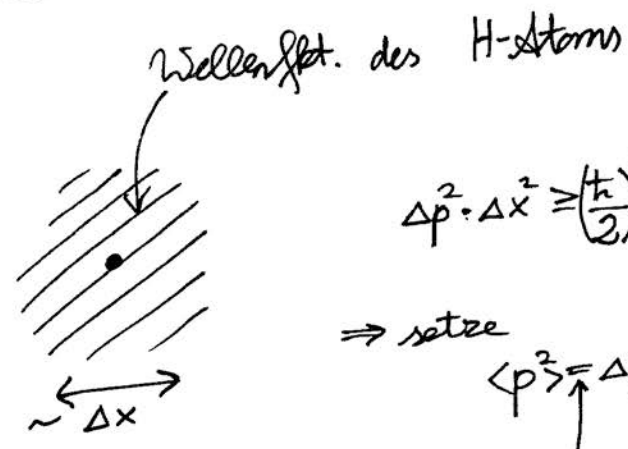 Wellenfkt. des H-Atoms
Δp²·Δx² ≥ (ħ/2)
⇒ setze
⟨p²⟩ = Δ
~ Δx